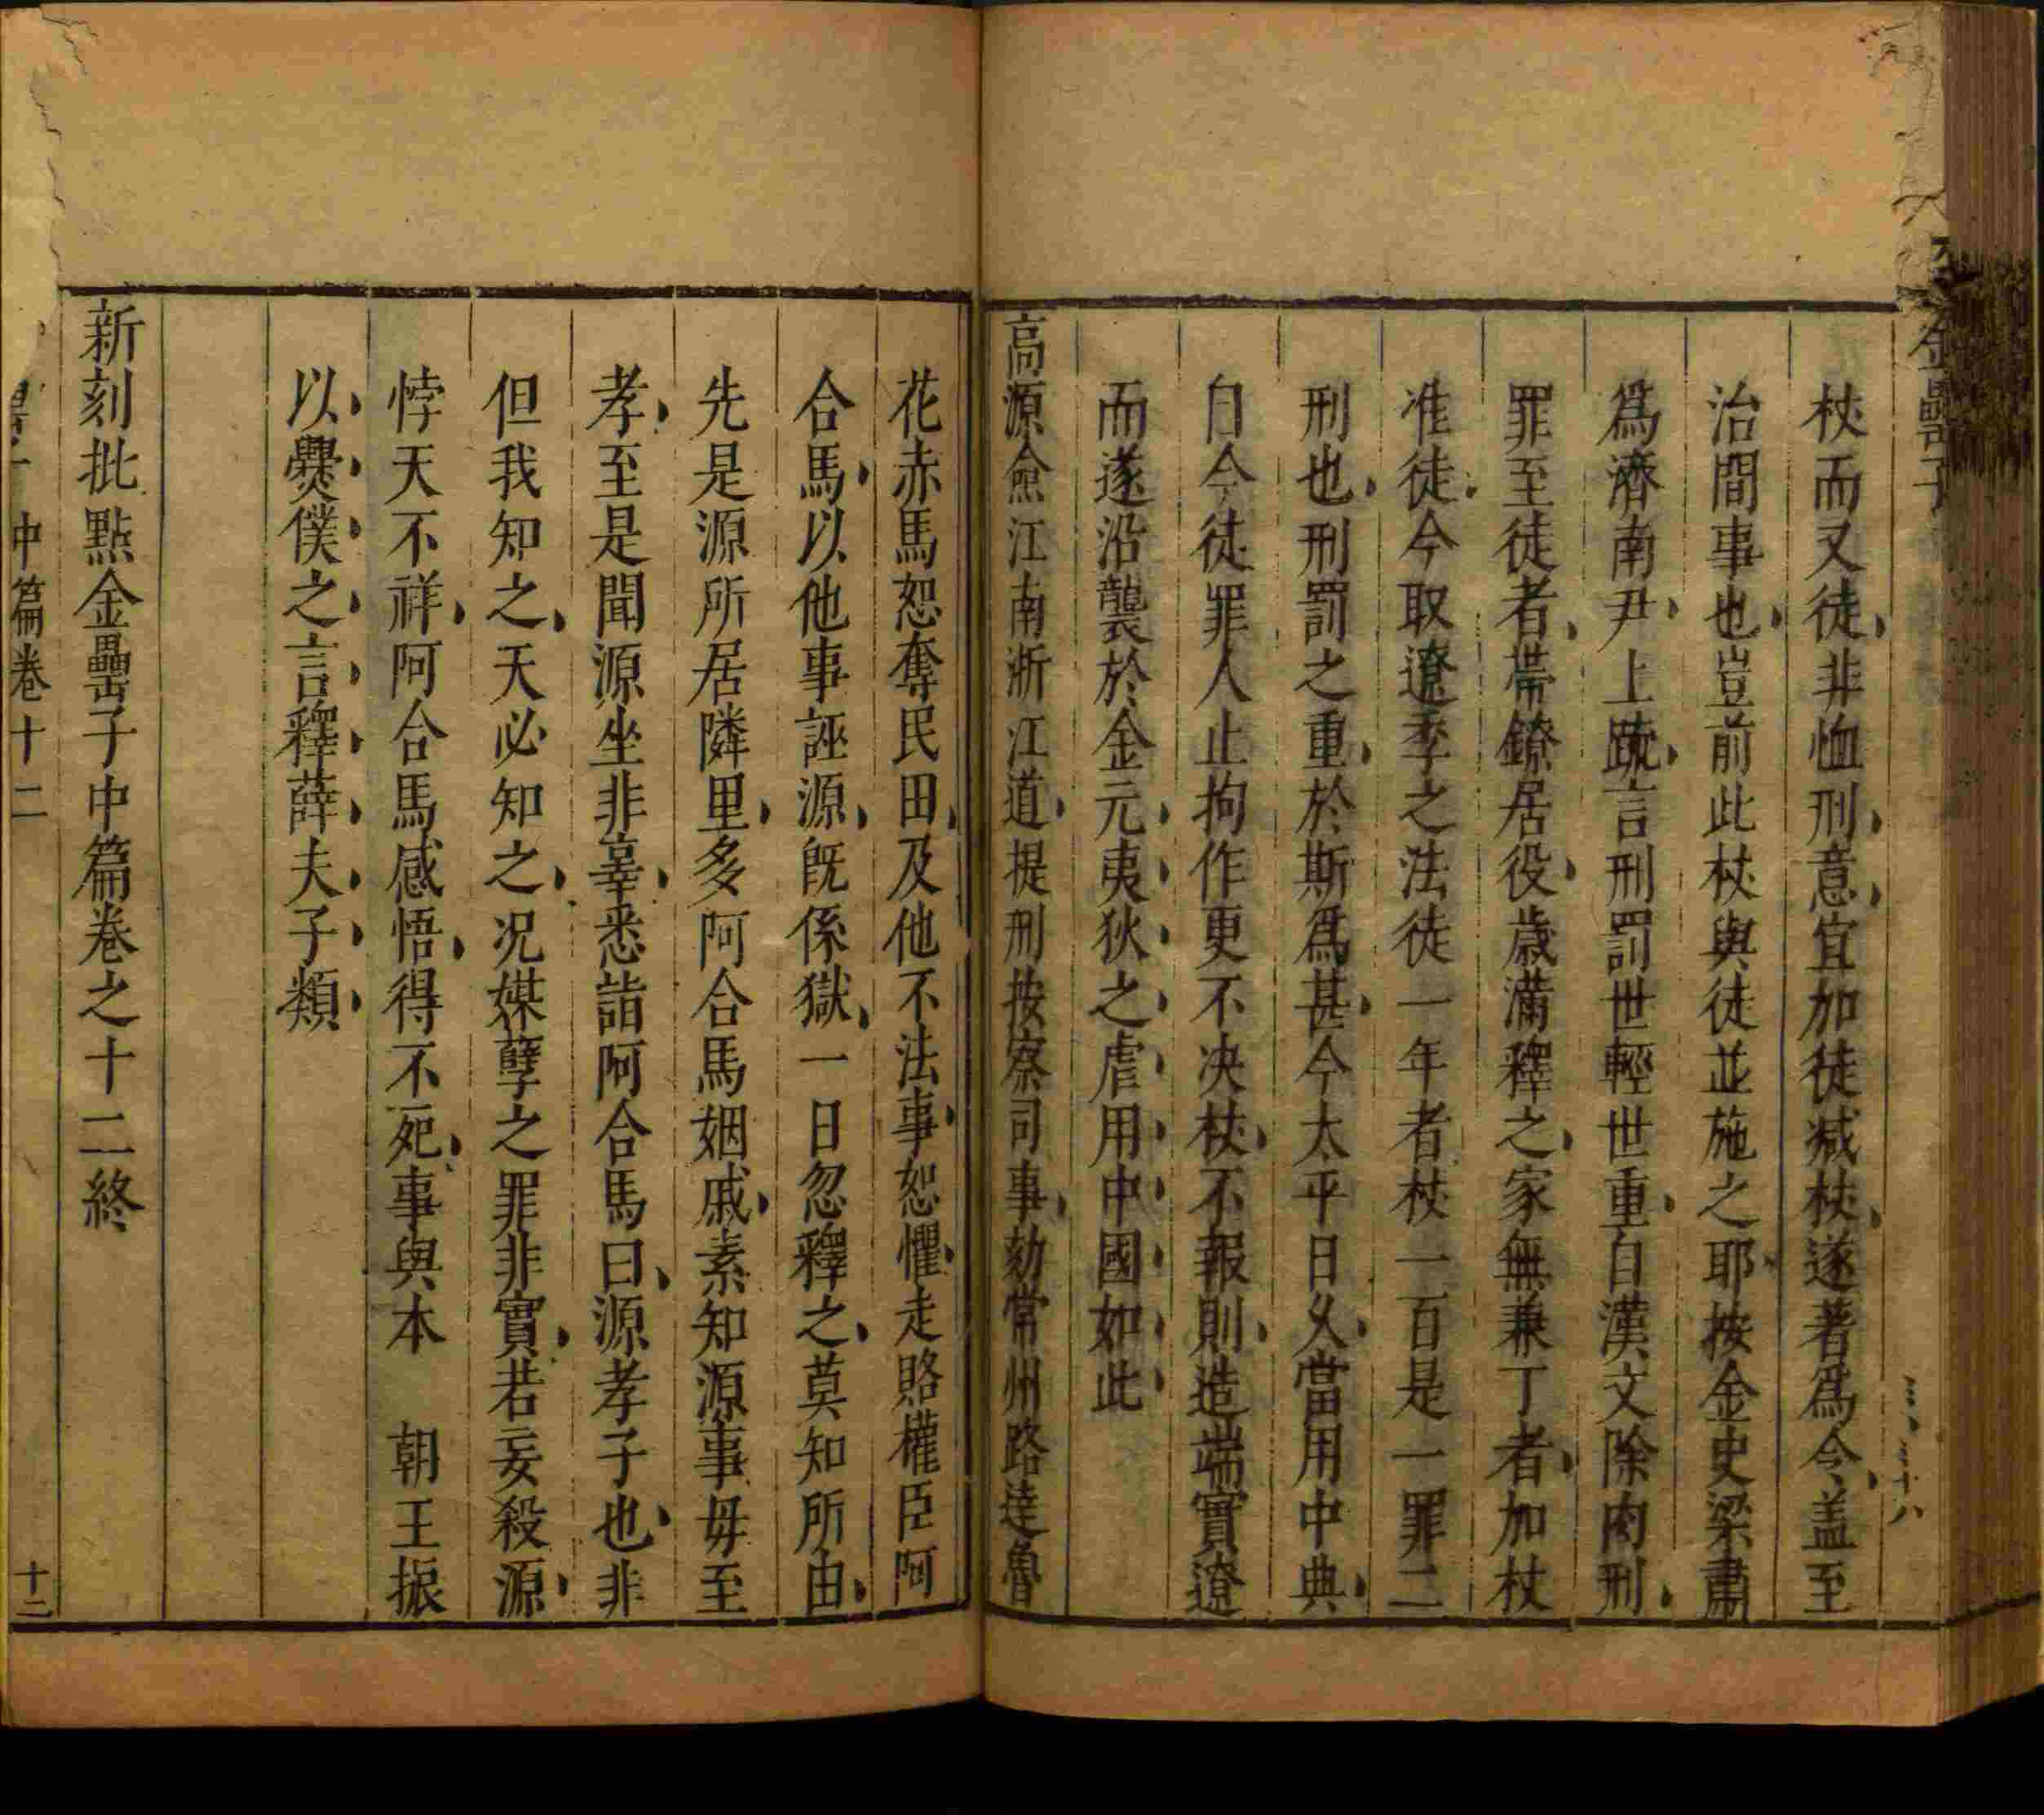 金罍子
杖而又徒非恤刑意宜加徒减杖遂著爲今盖至
治間事也豈前此杖與徒並施之耶按金史梁肅
爲濟南尹上䟽言刑罰世輕世重自漢文除肉刑
罪至徒者帶鐐居役歲滿釋之家無兼丁者加杖
准徒今取遼季之法徒一年者杖一百是一罪二
刑也刑罰之重於斯爲甚今太平日乆當用中典
自今徒罪人止拘作更不决杖不報則造端實遼
而遂沿襲於金元夷狄之虐用中國如此
高源僉江南浙江道提刑按察司事劾常州路達魯
花赤馬恕奪民田及他不法事恕懼走賂權臣阿
合馬以他事誣源旣係獄一日忽釋之莫知所由
先是源所居隣里多阿合馬姻戚素知源事毋至
孝至是聞源坐非辜悉詣阿合馬曰源孝子也非
但我知之天必知之况媒孽之罪非實若妄殺源
悖天不祥阿合馬感悟得不死事與本　朝王振
以爨僕之言釋薛夫子類
新刻批點金罍子中篇卷之十二終
中篇卷十二
十二